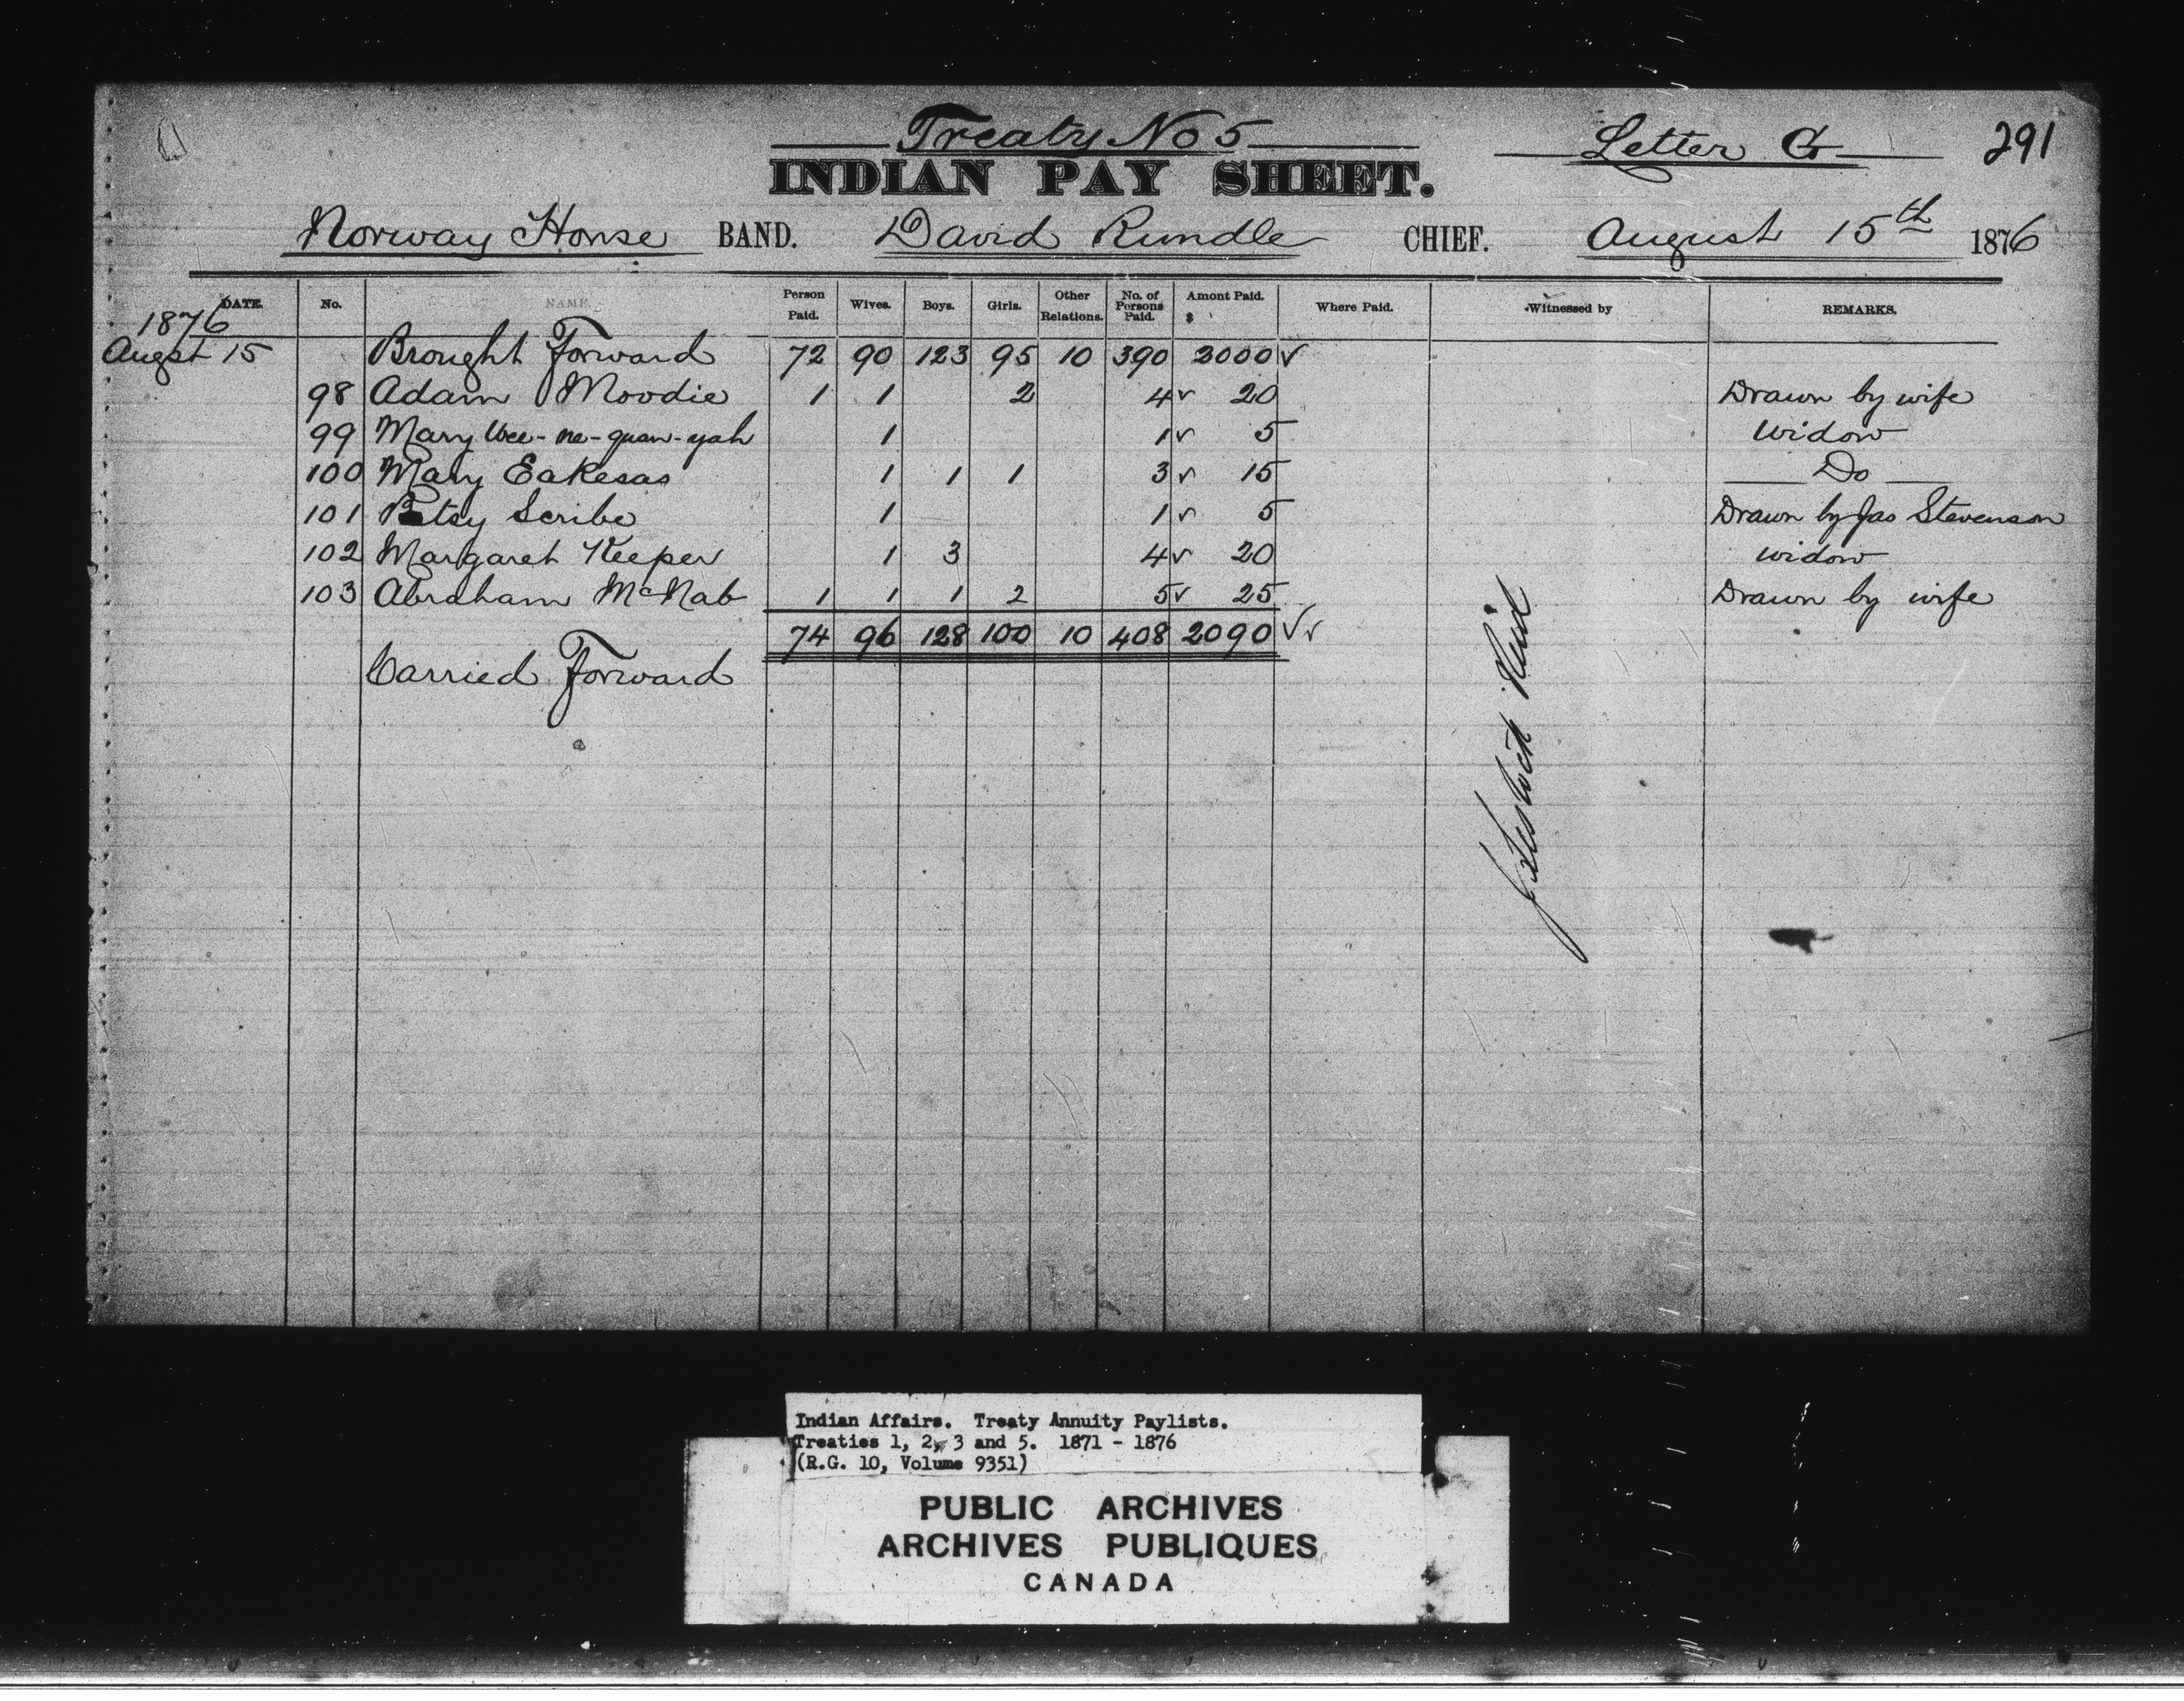 Treaty No 5
Letter G
291
INDIAN PAY SHEET.
Norway House BAND. David Rundle CHIEF. August 15th 1876
DATE. No. NAME. Person Paid. Wives. Boys. Girls. Other Relations. No. of Persons Paid. Amont Paid. $ Where Paid. Witnessed by REMARKS.
1876
Augst 15 Brought Forward 72 90 123 95 10 390 2000 ✓
98 Adam Moodie 1 1 2 4 ✓ 20 Drawn by wife
99 Mary Wee-na-quan-yah 1 1 ✓ 5 Widow
100 Mary Eakesas 1 1 1 3 ✓ 15 Do
101 Betsy Scribe 1 1 ✓ 5 Drawn by Jas Stevenson
102 Margaret Keeper 1 3 4 ✓ 20 widow
103 Abraham McNab 1 1 1 2 5 ✓ 25 Drawn by wife
74 96 128 100 10 408 2090 ✓✓
Carried Forward
Reid
Indian Affairs. Treaty Annuity Paylists.
Treaties 1, 2, 3 and 5. 1871 - 1876
(R.G. 10, Volume 9351)
PUBLIC ARCHIVES
ARCHIVES PUBLIQUES
CANADA